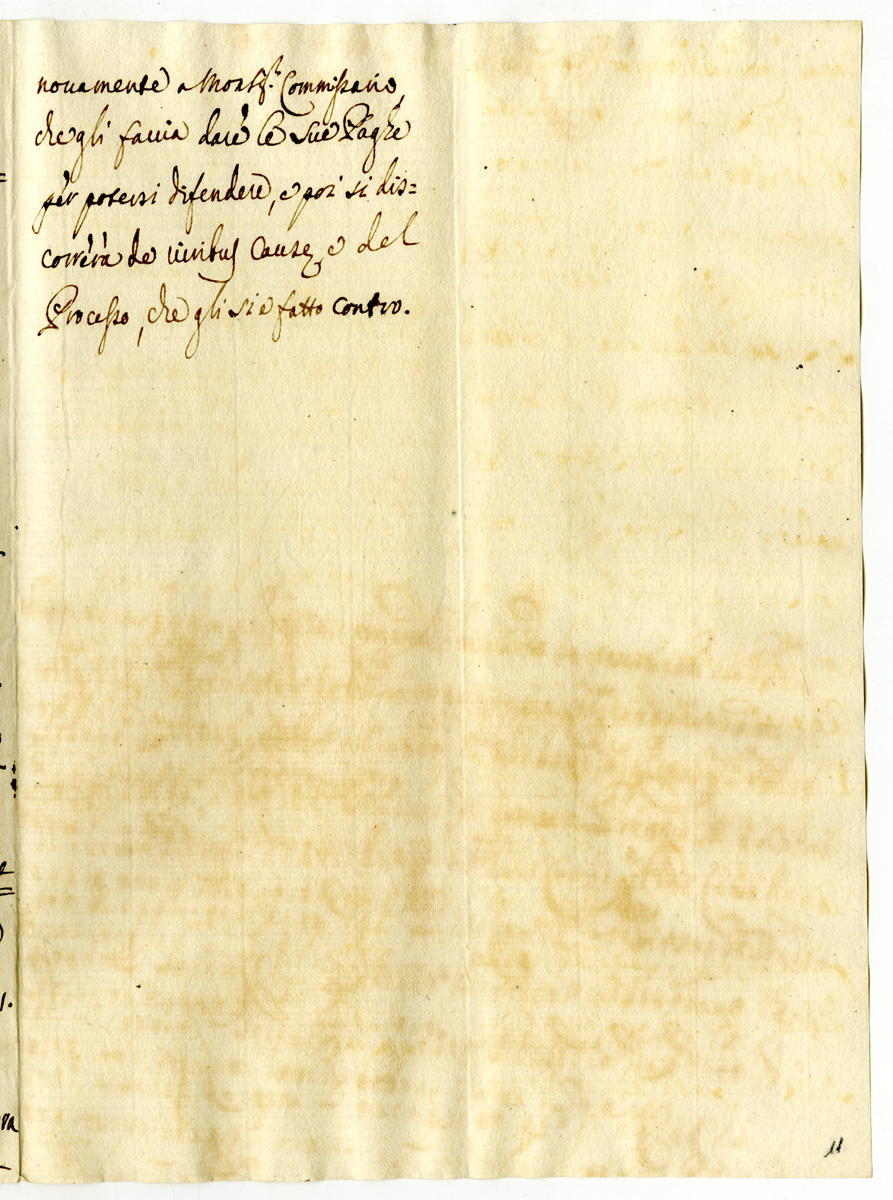 nouamente a Monsig.r Commissario,
che gli faccia dare le sue Paghe
per potersi difendere, e poi si dis=
correrà de viribus Causę, e del
Processo, che gli si è fatto contro.
11